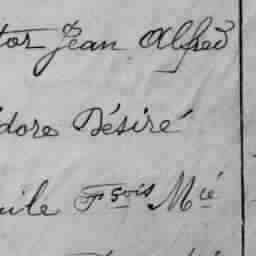 tor Jean Alfred
dore Désiré
uile Fçois Mie